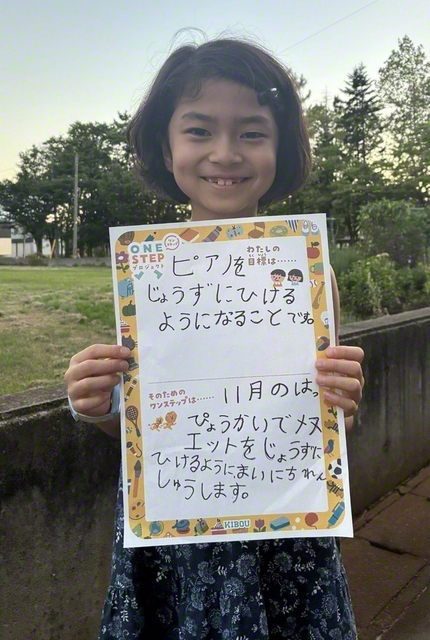 ONE
STEP
プロジェクト
わたしの
目標は……
ピアノを
じょうずにひける
ようになることです。
そのための
ワンステップは……
11月のはっ
ぴょうかいでメヌ
エットをじょうずに
ひけるように、まいにちれん
しゅうします。
KIBOU